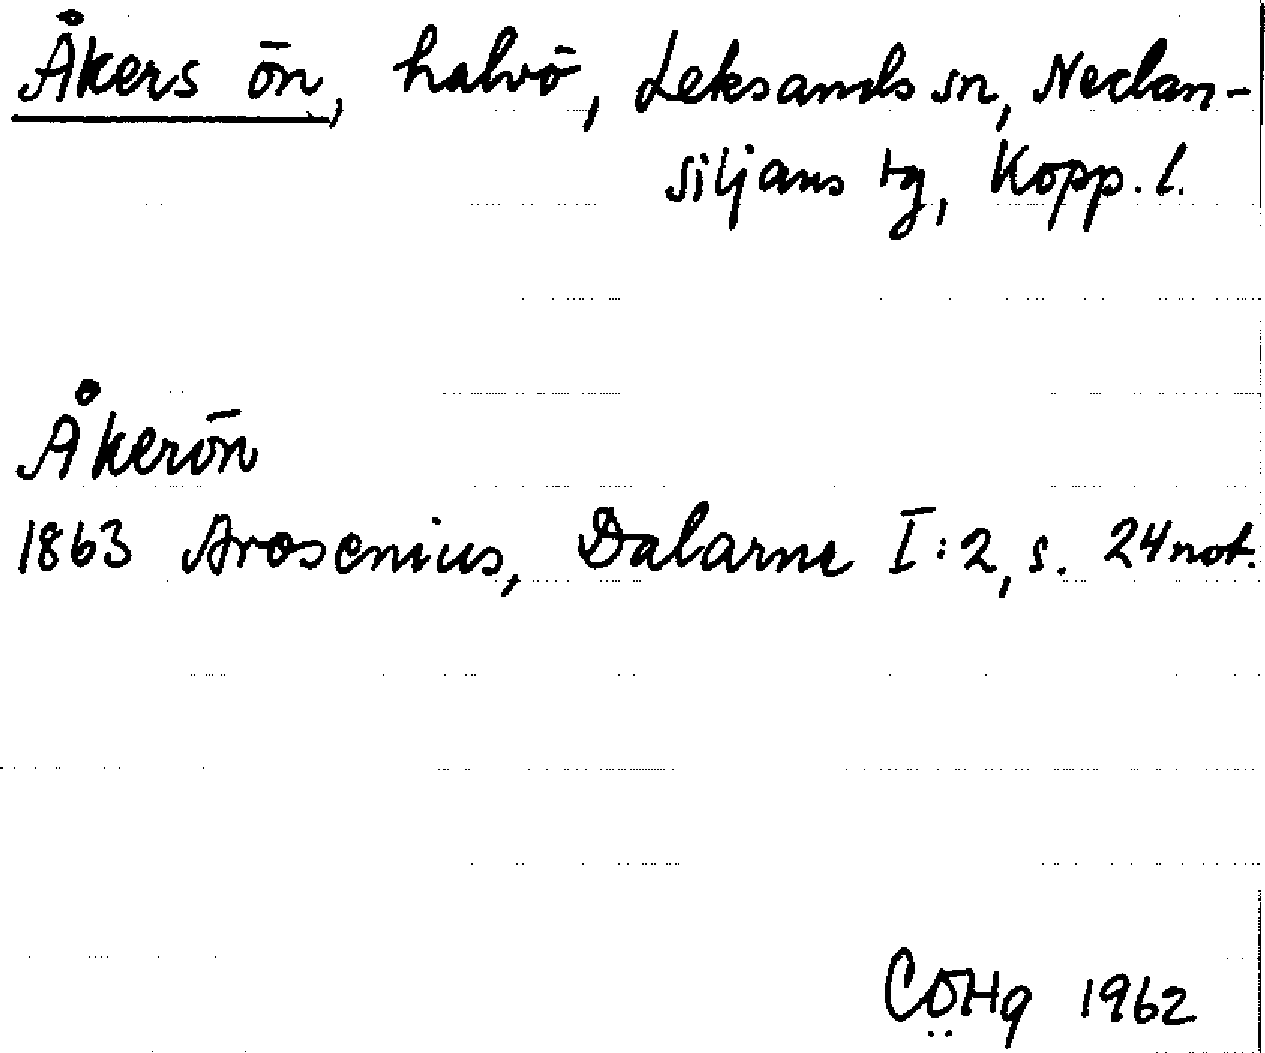 Åkers ön, halvö, Leksands sn, Nedan-
siljans tg, Kopp. l.
Åkerön
1863 Arosenius, Dalarne I:2, s. 24 not.
CÖHg 1962